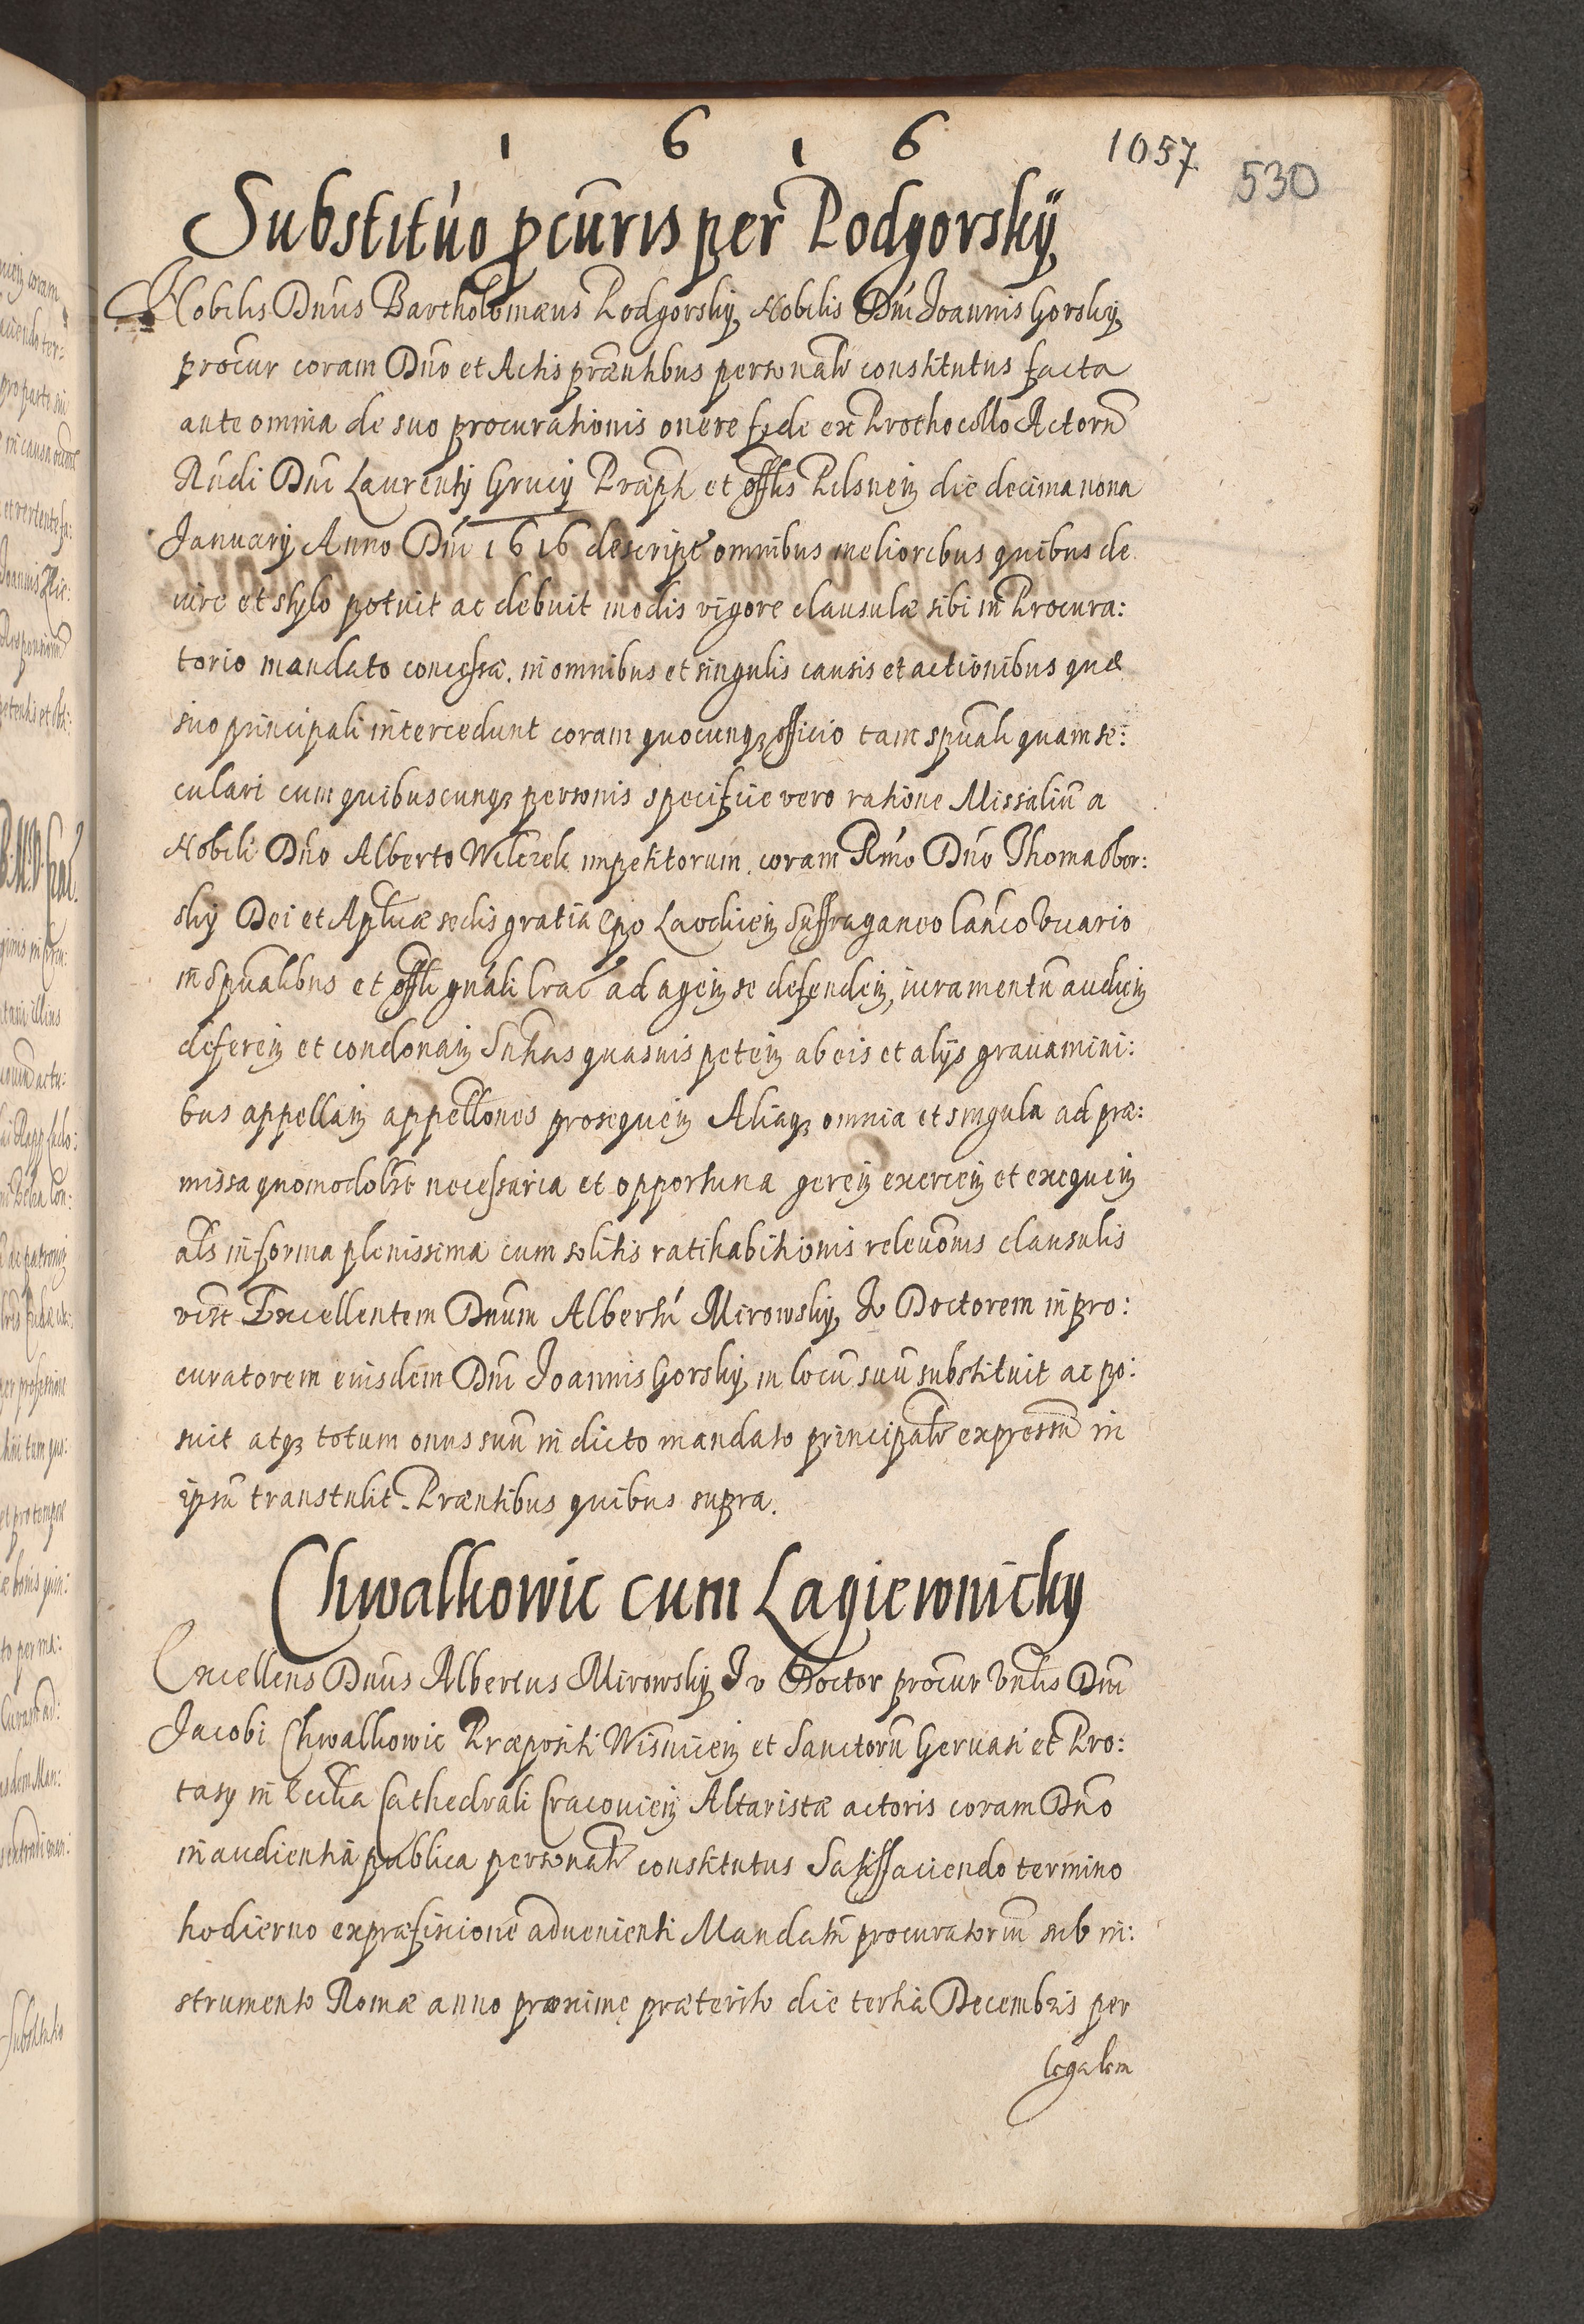 1 6 1 6 1057 530
Substituo pcuris per Podgorskÿ
Nobilis Dnus Bartholomæus Podgorskÿ Nobilis Dni Joannis Gorskÿ
procur coram Dno et Actis præntibus personalr constitutus facta
ante omnia de suo procurationis onere fide ex Prothocollo Actorũ
Rndi Dni Laurentÿ Grucÿ Præpti et offlis Pilsneñ die decimanona
Januarÿ Anno Dni 1616 descript omnibus melioribus quibus de
iure et stylo potuit ac debuit modis vigore clausulæ sibi in Procura:
torio mandato concessæ. in omnibus et singulis causis et actionibus quæ
suo principali intercedunt coram quocunqꝫ officio tam spuali quam se:
culari cum quibuscunqꝫ personis specifice vero ratione Missaliũ a
Nobili Dno Alberto Wilczek impetitorum. coram Rmo Dno Thoma Obor:
sky Dei et Aplicæ sedis gratia Epo Laodiceñ Suffraganeo Canco Vicario
in Spualibus et offli gnali Crac ad ageñ se defendeñ, iuramentũ audieñ
defereñ et condonañ Sntias quasuis peteñ ab eis et alÿs grauamini:
bus appellañ appellones prosequeñ Aliaqꝫ omnia et singula ad præ:
missa quomodolibt necessaria et opportuna gereñ exerceñ et exequeñ
als in forma plenissima cum solitis ratihabitionis releuonis clausulis
vidt Excellentem Dnum Albertũ Mirowskÿ Iv Doctorem in pro:
curatorem eiusdem Dni Joannis Gorskÿ in locũ suũ substituit ac po:
suit atqꝫ totum onus suũ in dicto mandato principalr expressũ in
ipsũ transtulit. Præntibus quibus supra.
Chwalkowic cum Lagiewnicky
Excellens Dnus Albertus Mirowskÿ Iv Doctor procur Vnlis Dni
Jacobi Chwalkowic Præpositi Wisniceñ et Sanctorũ Geruasi et Pro:
tasy in Ecclia Cathedrali Cracouieñ Altaristæ actoris coram Dno
in audientia publica personalr constitutus Satisfaciendo termino
hodierno ex præfixione aduenienti Mandatũ procuratoriũ sub in:
strumento Romæ anno proxime præterito die tertia Decembris per
legalem